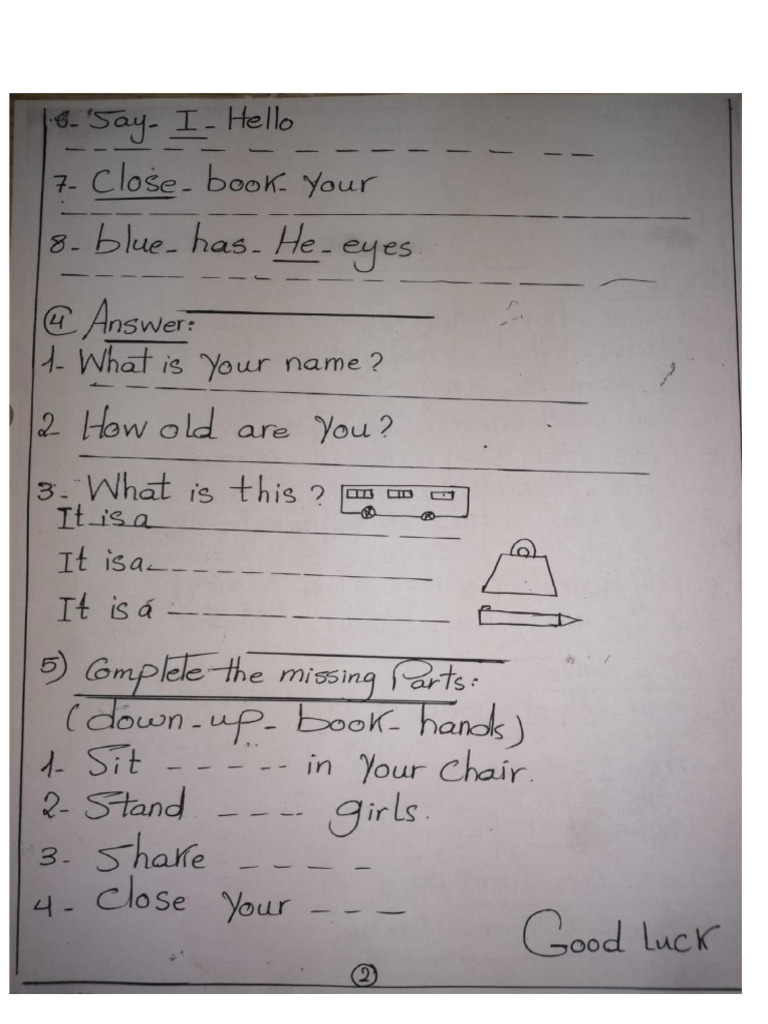 6- Say- I- Hello
7- Close- book- Your
8- blue- has- He- eyes.
④ Answer:
1- What is your name?
2- How old are you?
3- What is this?
It is a
It is a
It is a
5) Complete the missing Parts:
(down- up- book- hands)
1- Sit ----- in your chair.
2- Stand ---- girls.
3- Shake ----
4- Close your ---
Good Luck
②